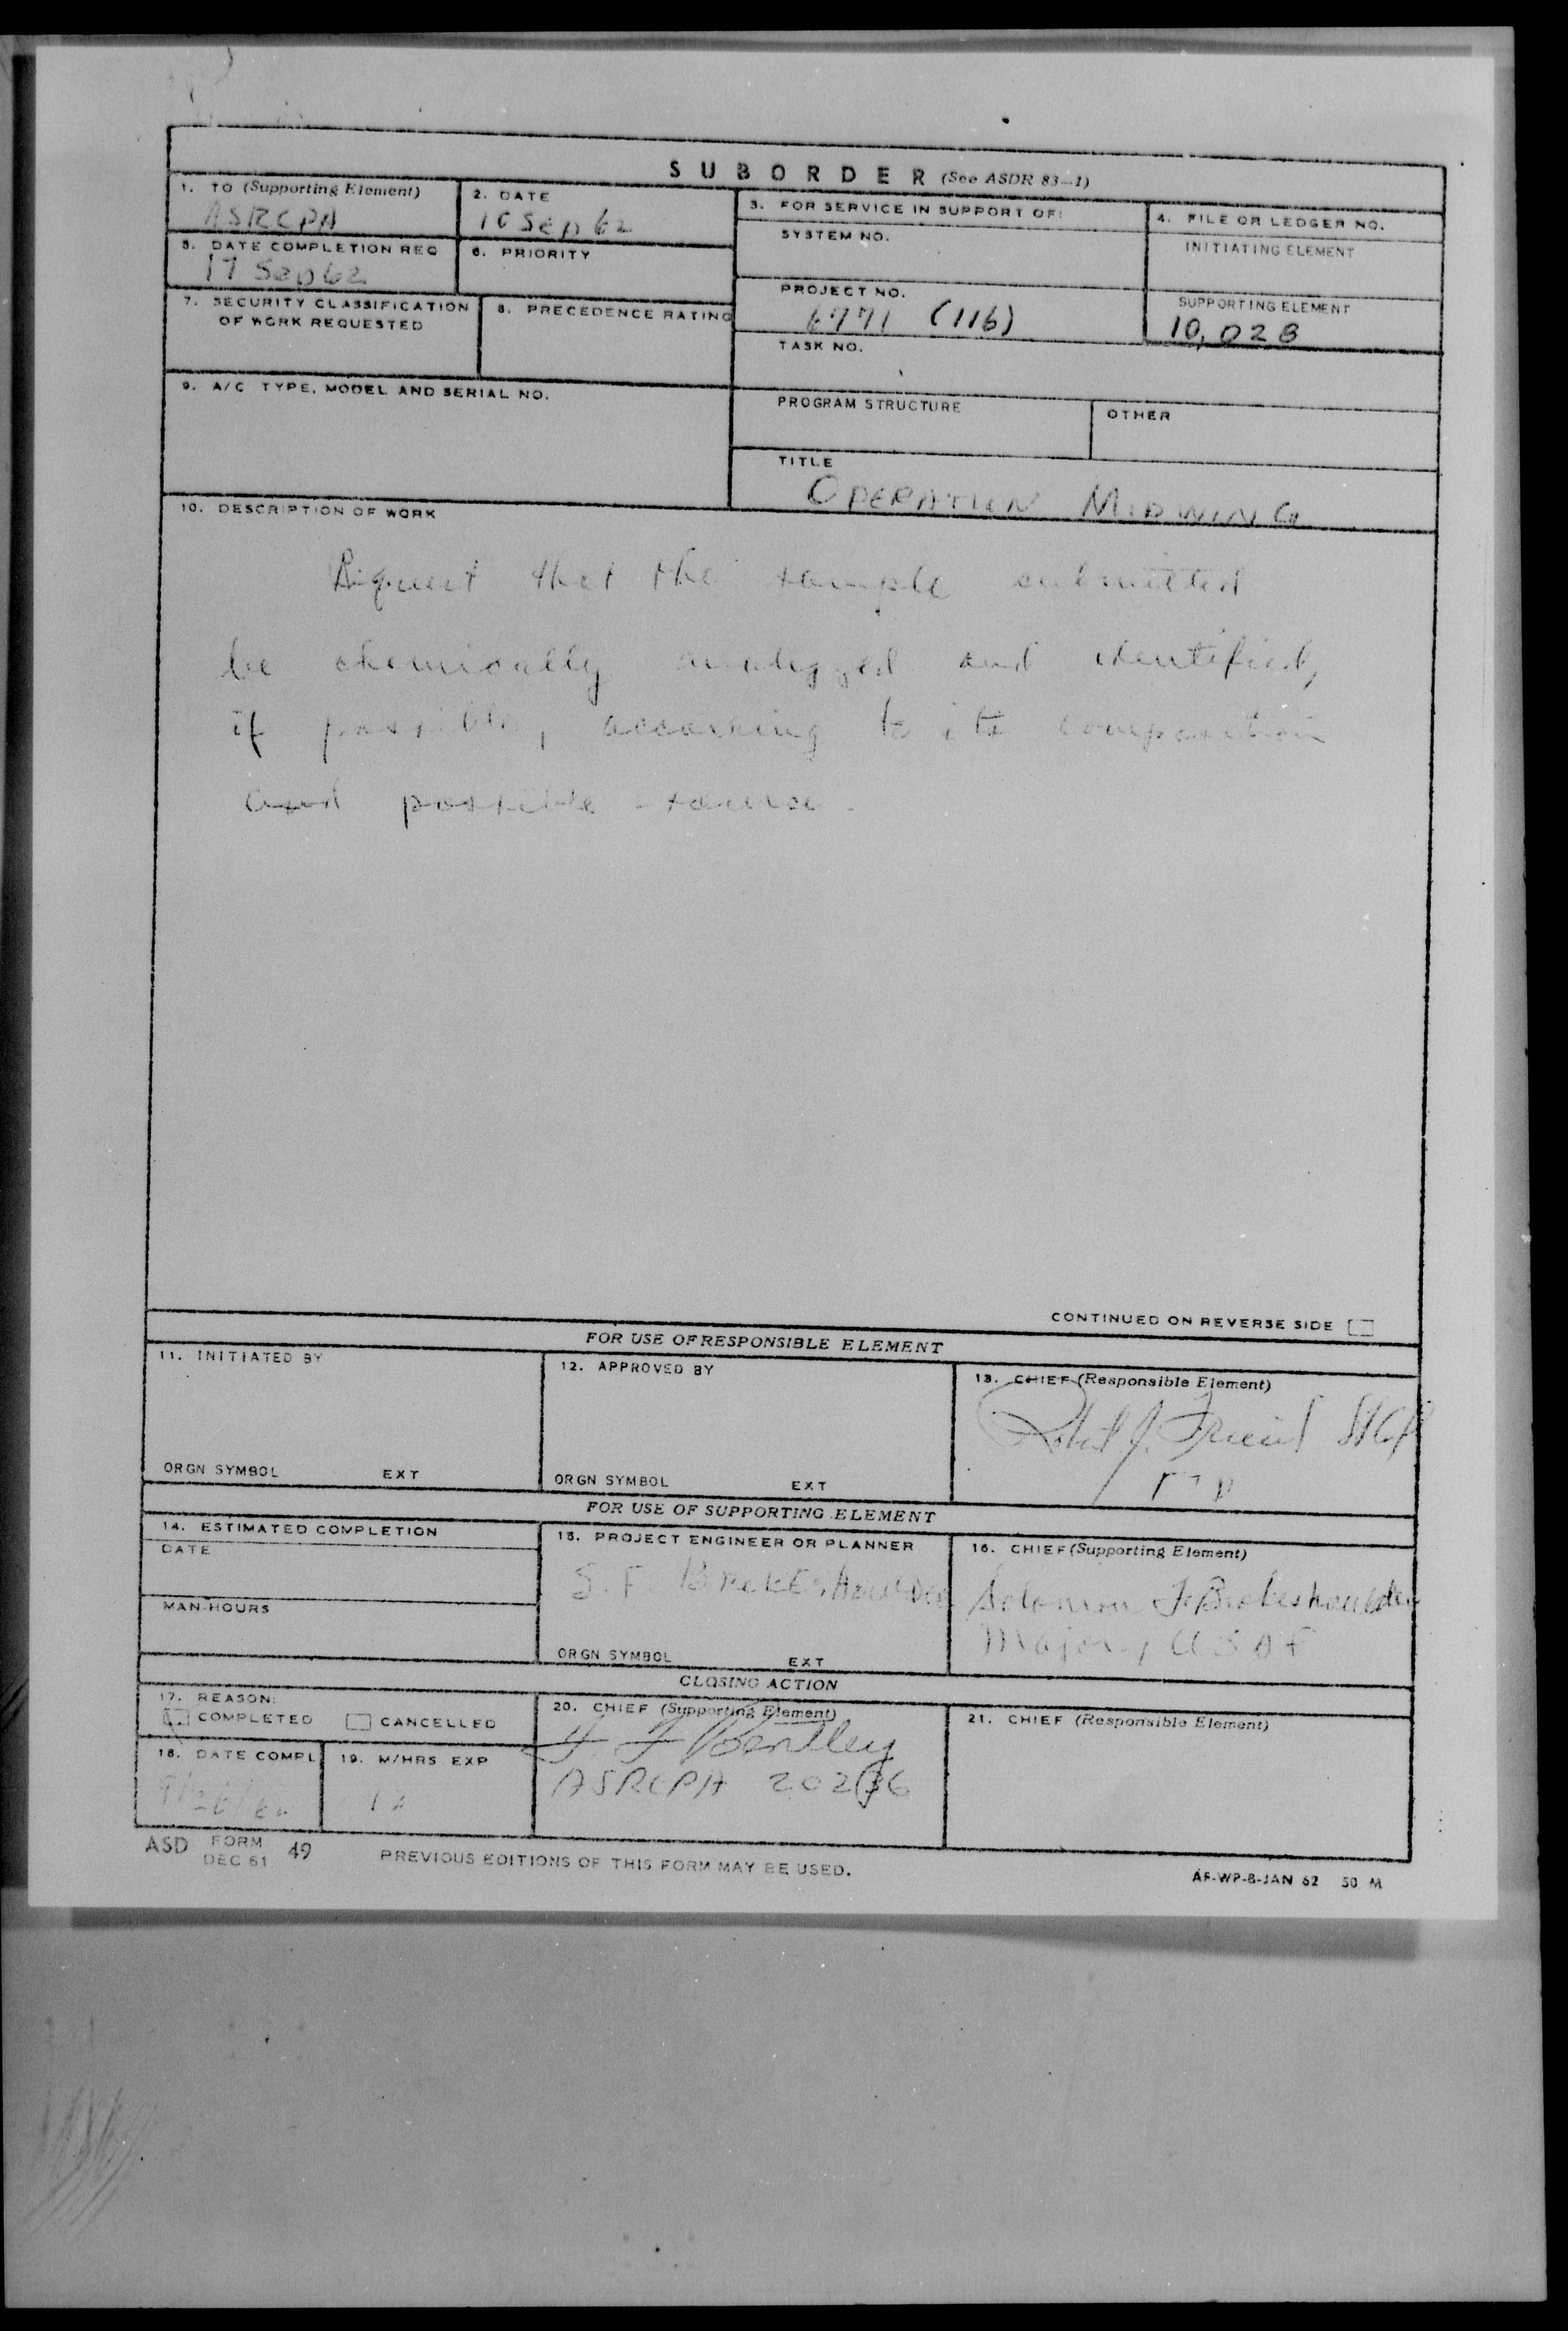 SUBORDER (See ASDR 83-1)
1. TO (Supporting Element)
ASRCPA
2. DATE
10 Sep 62
3. FOR SERVICE IN SUPPORT OF:
4. FILE OR LEDGER NO.
SYSTEM NO.
INITIATING ELEMENT
5. DATE COMPLETION REQ
17 Sep 62
6. PRIORITY
PROJECT NO.
6771 (116)
SUPPORTING ELEMENT
10,028
7. SECURITY CLASSIFICATION
OF WORK REQUESTED
8. PRECEDENCE RATING
TASK NO.
9. A/C TYPE, MODEL AND SERIAL NO.
PROGRAM STRUCTURE
OTHER
TITLE
OPERATION MIDWING
10. DESCRIPTION OF WORK
Request that the sample submitted
be chemically analyzed and identified,
if possible, according to its composition
and possible source.
CONTINUED ON REVERSE SIDE
FOR USE OF RESPONSIBLE ELEMENT
11. INITIATED BY
12. APPROVED BY
13. CHIEF (Responsible Element)
Robert J. Friend
ORGN SYMBOL EXT
ORGN SYMBOL EXT
FOR USE OF SUPPORTING ELEMENT
14. ESTIMATED COMPLETION
DATE
MAN-HOURS
15. PROJECT ENGINEER OR PLANNER
S. F. Brokeshoulder
ORGN SYMBOL EXT
16. CHIEF (Supporting Element)
Solomon F. Brokeshoulder
Major, USAF
CLOSING ACTION
17. REASON:
COMPLETED CANCELLED
18. DATE COMPL
19. M/HRS EXP
20. CHIEF (Supporting Element)
F. F. Bentley
ASRCPA
21. CHIEF (Responsible Element)
ASD FORM DEC 61 49
PREVIOUS EDITIONS OF THIS FORM MAY BE USED.
AF-WP-B-JAN 62 50 M